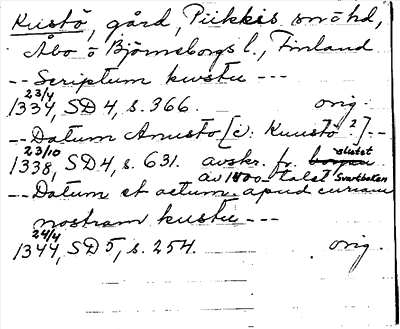 Kustö, gård, Piikkis snöhd,
Åbo o Björneborgs l., Finland
-- Scriptum kustu ---
23/4
1334, SD 4, s. 366. orig.
-- Datum Anusto [c: Kuustö?] --
23/10
1338, SD 4, s. 631. avskr. fr. slutet
av 1400-talet Svartboken
-- Datum et actum apud curiam
nostram kustu ---
24/4
1344, SD 5, s. 254. orig.